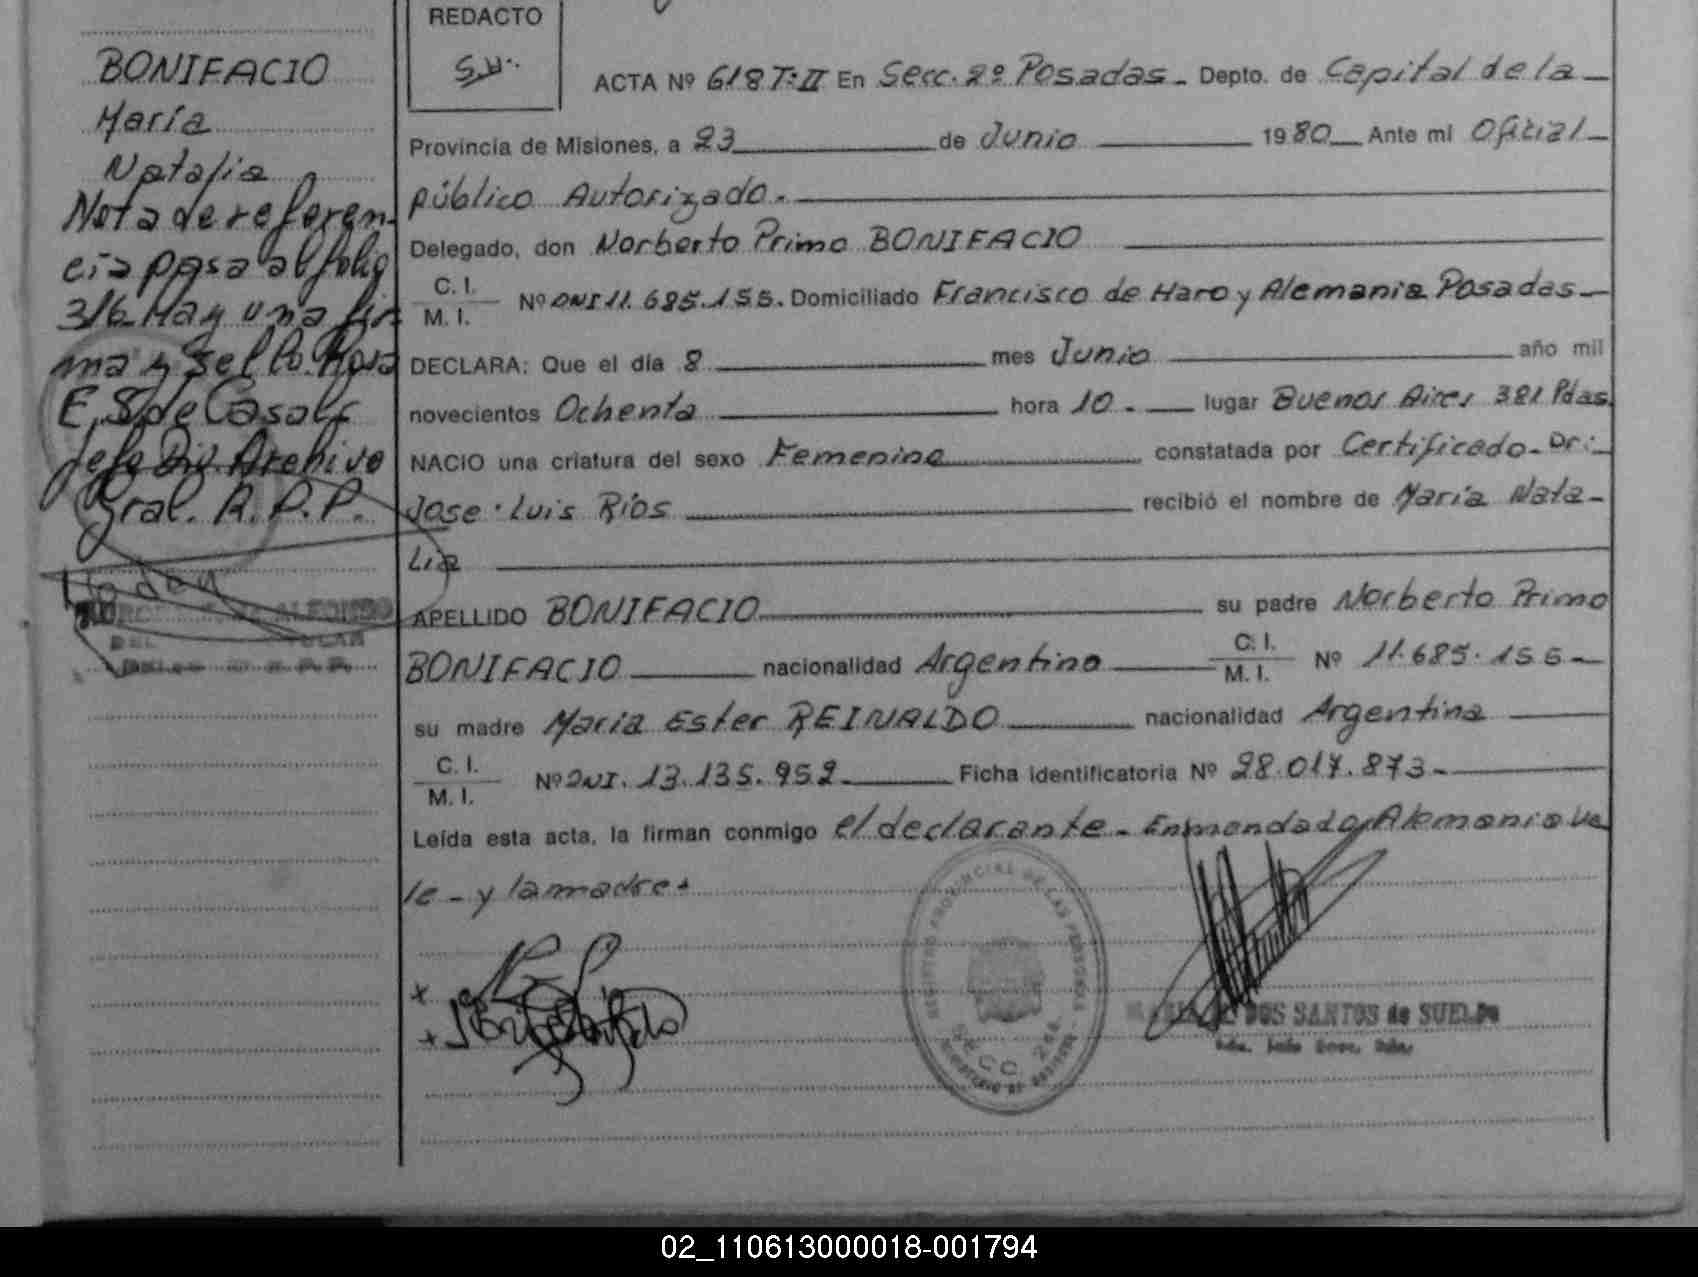 BONIFACIO
María
Natalia
Nota de referen-
cia pasa al folio
316 Hay una fir
ma y sello Rosa
E. S de Casals
Jefe Div. Archivo
Gral. R. P. P.
REDACTO
ACTA Nº 618 T:II En Secc. 2º Posadas - Depto. de Capital de la -
Provincia de Misiones, a 23 de Junio 1980 Ante mí Oficial -
público Autorizado.-
Delegado, don Norberto Primo BONIFACIO
C. I.
M. I. Nº DNI 11.685.155. Domiciliado Francisco de Haro y Alemania Posadas -
DECLARA: Que el día 8 mes Junio año mil
novecientos Ochenta hora 10.- lugar Buenos Aires 381 Pdas.
NACIO una criatura del sexo Femenino constatada por Certificado - Dr:-
Jose Luis Ríos recibió el nombre de María Nata-
Lia
APELLIDO BONIFACIO su padre Norberto Primo
BONIFACIO nacionalidad Argentino C. I.
M. I. Nº 11.685.155 -
su madre María Ester REINALDO nacionalidad Argentina
C. I.
M. I. Nº DNI. 13.135.952 Ficha identificatoria Nº 28.017.873-
Leída esta acta, la firman conmigo el declarante - Enmendado Alemania Va
le - y la madre.
REGISTRO PROVINCIAL DE LAS PERSONAS
SECC 2da.
DOS SANTOS de SUELDO
02_110613000018-001794